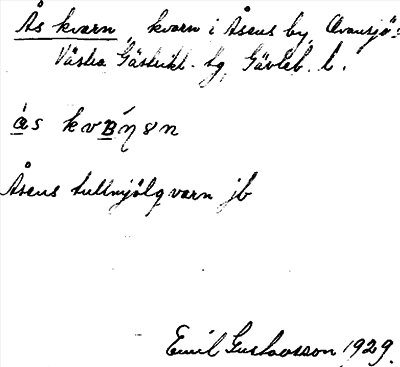 Ås kvarn, kvarn i Åsens by, Ovansjö s:
Västra Gästrikl. tg, Gävleb. l.
ås kvarn
Åsens tullmjölqvarn jb
Emil Gustavsson 1929.